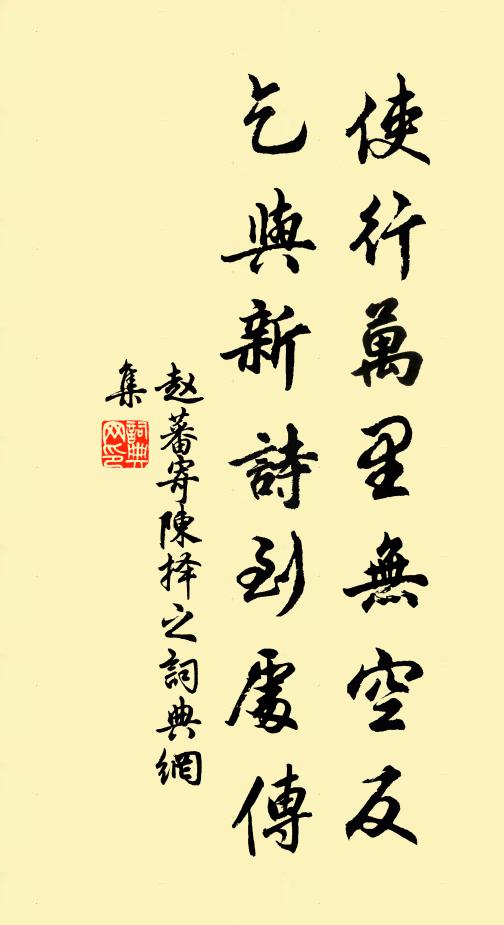 使行萬里無空反
乞與新詩到處傳
赵蕃寄陳择之詞典網
集
詞典
网印